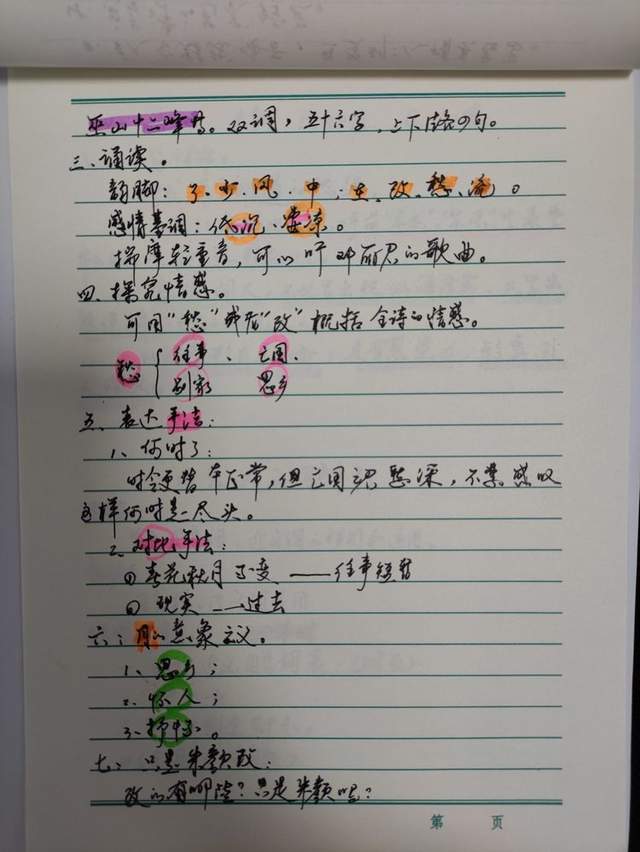 巫山十二峰等。双调，五十六字，上下片各四句。
三、诵读。
韵脚：了、少、风、中；在、改、愁、流。
感情基调：低沉、凄凉。
揣摩轻重音，可以听邓丽君的歌曲。
四、探究情感。
可用"愁"或者"改"概括全诗的情感。
愁 往事、亡国、
别家 思乡
五、表达手法：
1、何时了：
时令更替本正常，但亡国魂愁深，不禁感叹
这样何时是一尽头。
2、对比手法：
① 春花秋月不变 ——往事短暂
② 现实 —— 过去
六：月的意象主义。
1、思乡；
2、怀人；
3、抒怀。
七、只是朱颜改：
改的有哪些？只是朱颜吗？
第 页